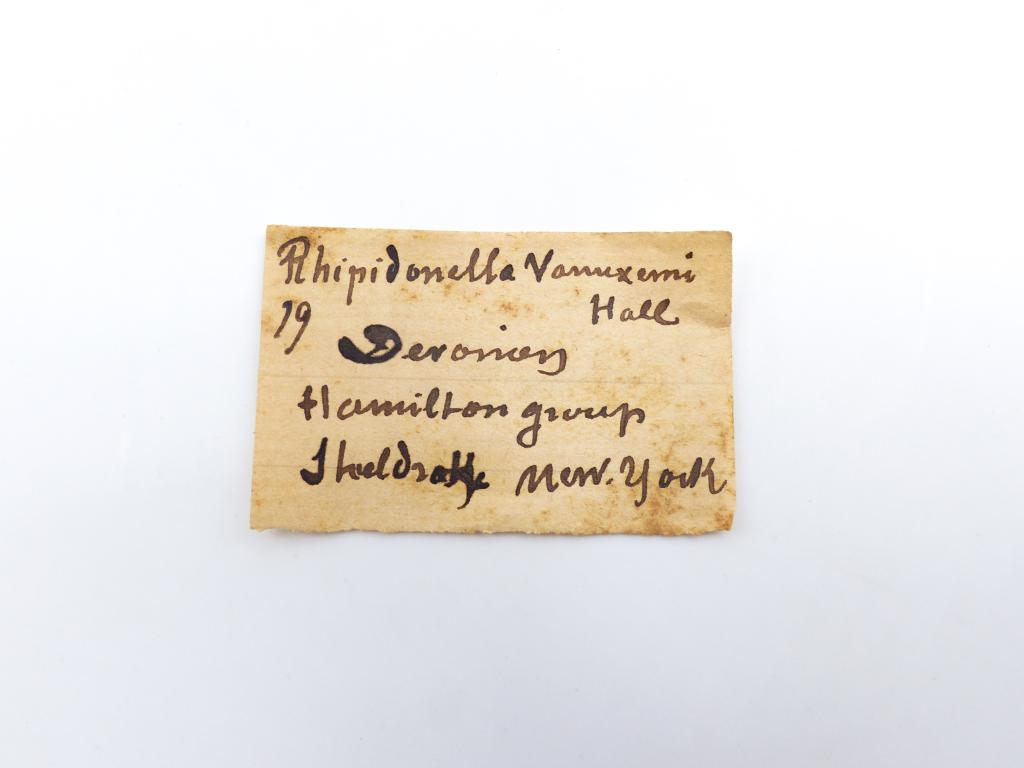 Rhipidonella Vanuxemi
Hall
19
Devonien
Hamilton group
Sheldrake New. York